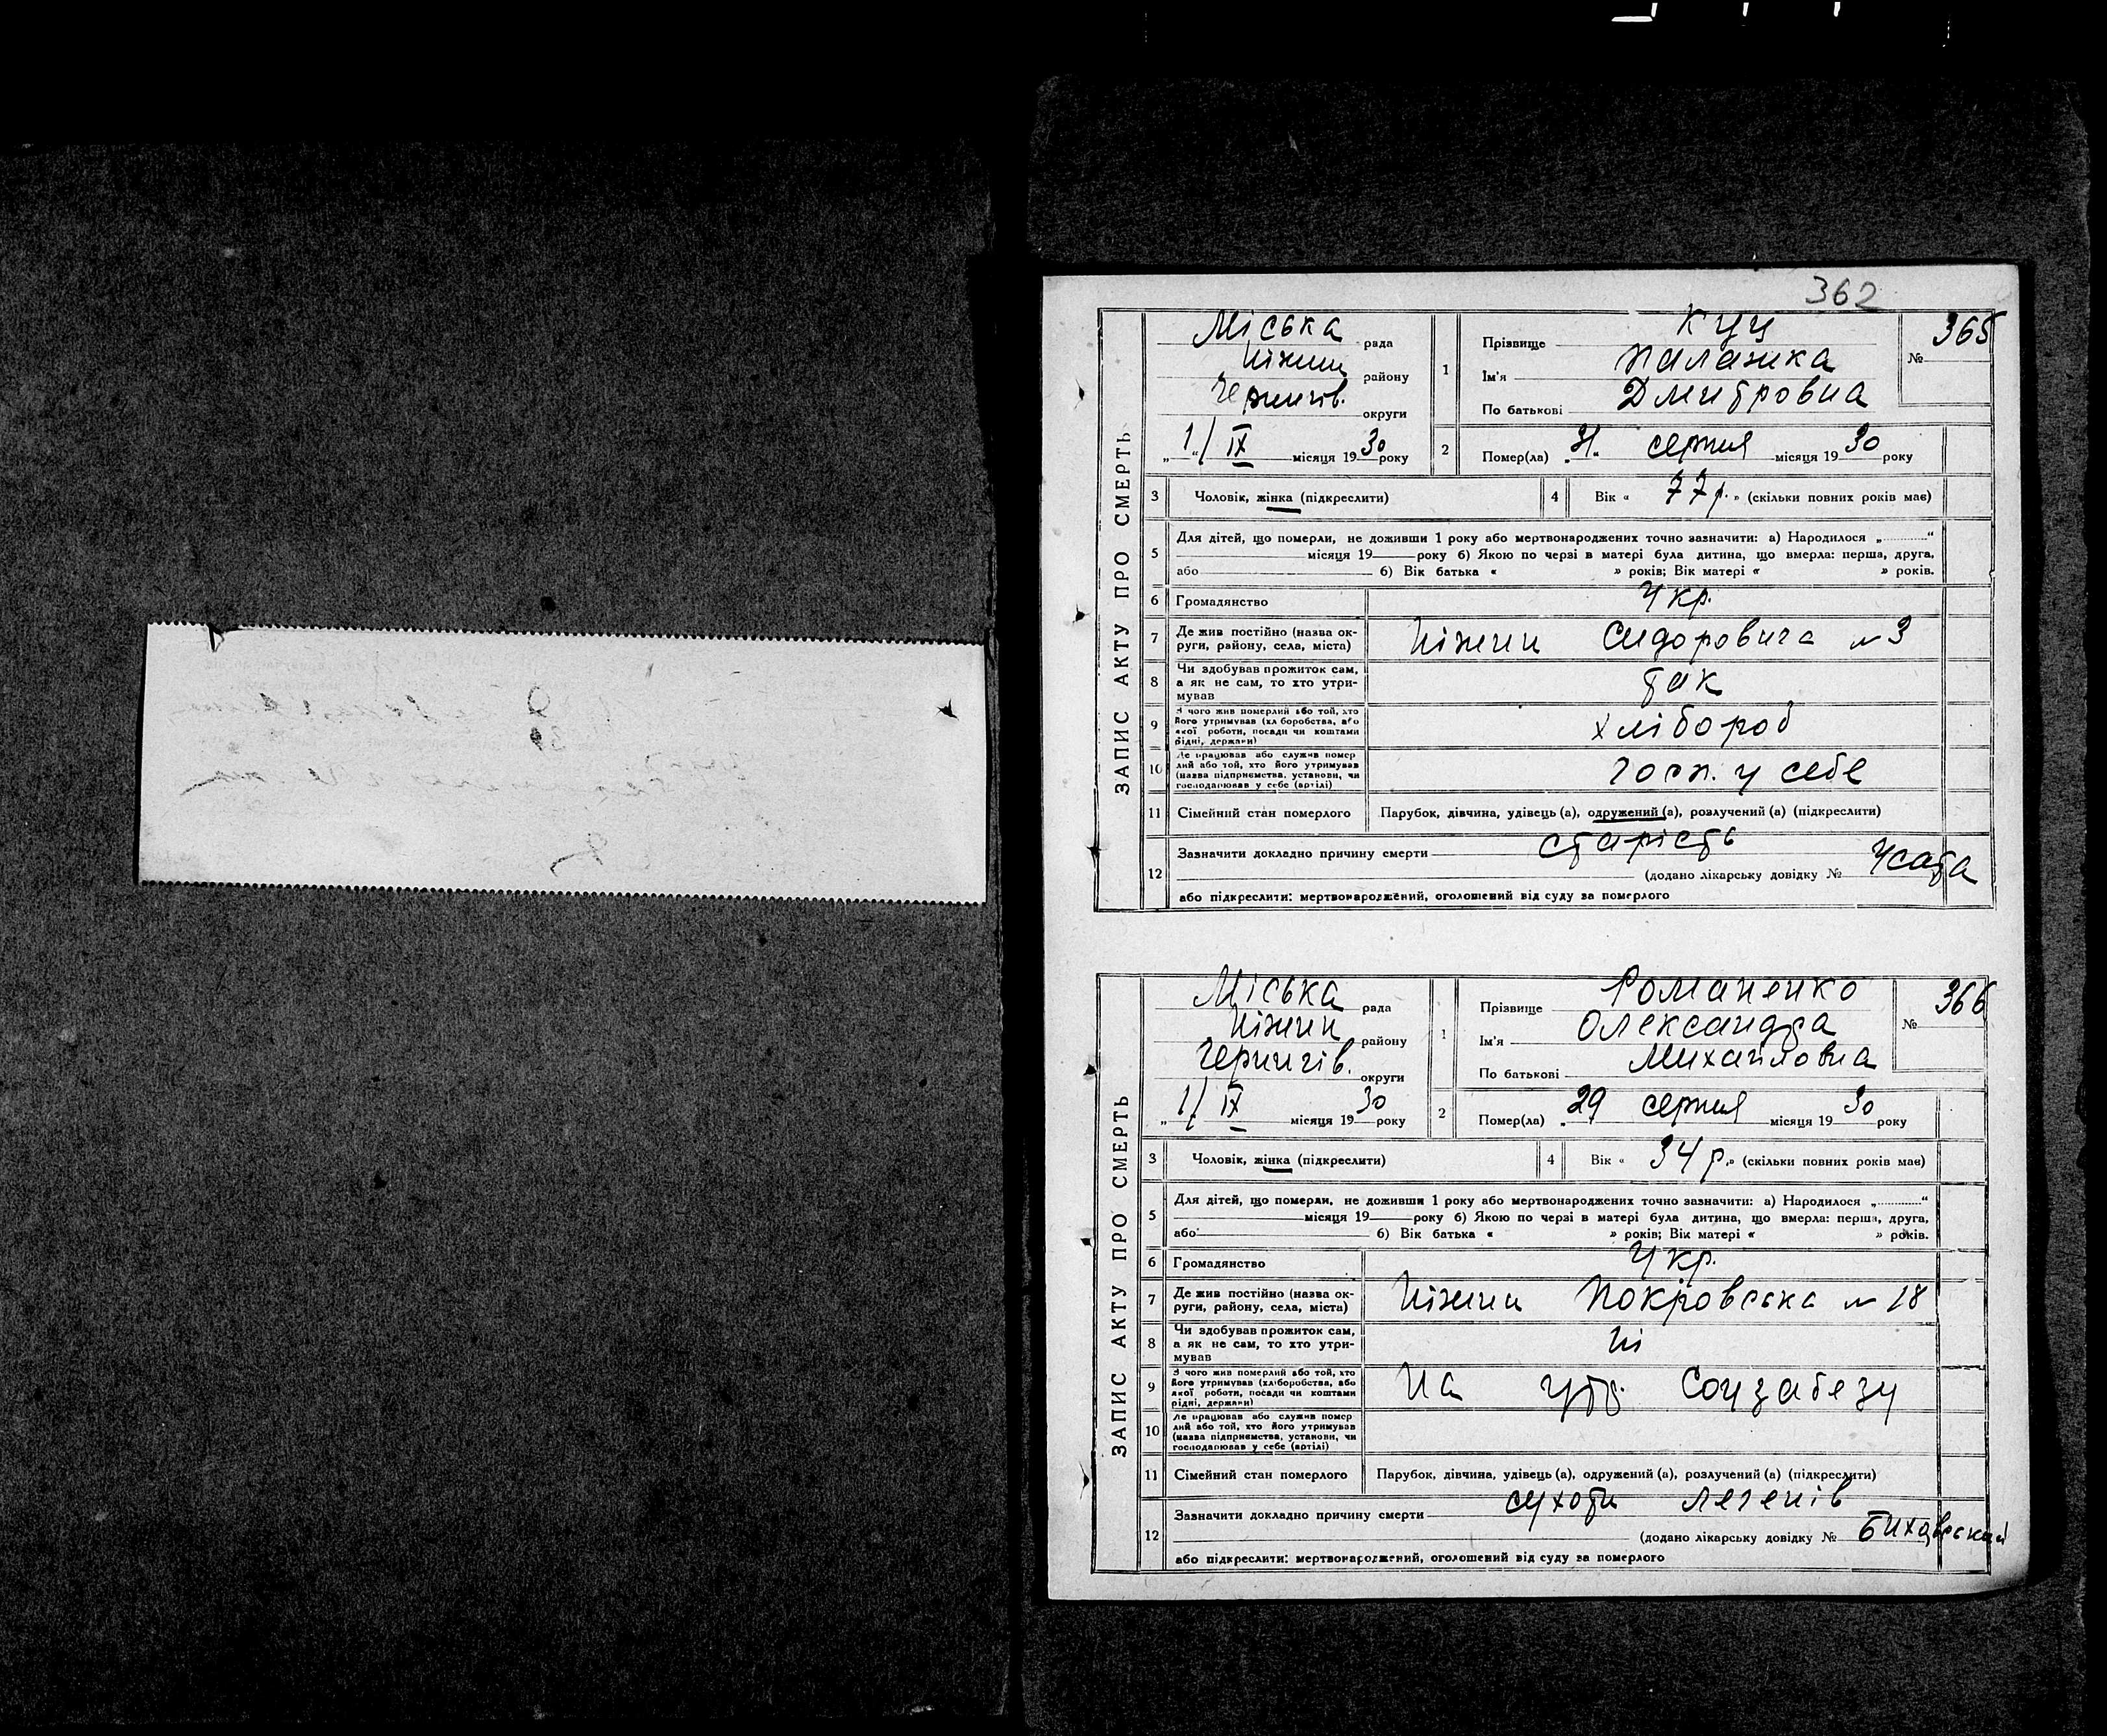 362
ЗАПИС АКТУ ПРО СМЕРТЬ
Міська рада
Ніжин району
Чернигів. округи
„1“/ IX місяця 1930 року
1 Прізвище Куц
Ім'я Палажка
По батькові Дмитровна
№ 365
2 Помер(ла) „31“ серпня місяця 1930 року
3 Чоловік, жінка (підкреслити)
4 Вік « 77 р. » (скільки повних років має)
5 Для дітей, що померли, не доживши 1 року або мертвонароджених точно зазначити: а) Народилося „..........“
місяця 19 року б) Якою по черзі в матері була дитина, що вмерла: перша, друга,
або б) Вік батька « » років; Вік матері « » років.
6 Громадянство Укр.
7 Де жив постійно (назва ок-
руги, району, села, міста) Ніжин Сидоровича № 3
8 Чи здобував прожиток сам,
а як не сам, то хто утри-
мував так
9 З чого жив померлий або той, хто
його утримував (хліборобства, або
якої роботи, посади чи коштами
рідні, держави) хлібороб
10 Де працював або служив помер
лий або той, хто його утримував
(назва підприємства, установи, чи
господарював у себе (артілі) госп. у себе
11 Сімейний стан померлого Парубок, дівчина, удівець (а), одружений (а), розлучений (а) (підкреслити)
12 Зазначити докладно причину смерти старість
(додано лікарську довідку № Усата
або підкреслити: мертвонароджений, оголошений від суду за померлого
ЗАПИС АКТУ ПРО СМЕРТЬ
Міська рада
Ніжин району
Чернигів. округи
„1/ IX місяця 1930 року
1 Прізвище Романенко
Ім'я Олександра
По батькові Михайловна
№ 366
2 Помер(ла) „29 серпня місяця 1930 року
3 Чоловік, жінка (підкреслити)
4 Вік « 34 р. » (скільки повних років має)
5 Для дітей, що померли, не доживши 1 року або мертвонароджених точно зазначити: а) Народилося „..........“
місяця 19 року б) Якою по черзі в матері була дитина, що вмерла: перша, друга,
або б) Вік батька « » років; Вік матері « » років.
6 Громадянство Укр.
7 Де жив постійно (назва ок-
руги, району, села, міста) Ніжин Покровська № 18
8 Чи здобував прожиток сам,
а як не сам, то хто утри-
мував ні
9 З чого жив померлий або той, хто
його утримував (хліборобства, або
якої роботи, посади чи коштами
рідні, держави) На утр. Соцзабезу
10 Де працював або служив помер
лий або той, хто його утримував
(назва підприємства, установи, чи
господарював у себе (артілі)
11 Сімейний стан померлого Парубок, дівчина, удівець (а), одружений (а), розлучений (а) (підкреслити)
12 Зазначити докладно причину смерти сухоти легенів
(додано лікарську довідку № Биховський
або підкреслити: мертвонароджений, оголошений від суду за померлого